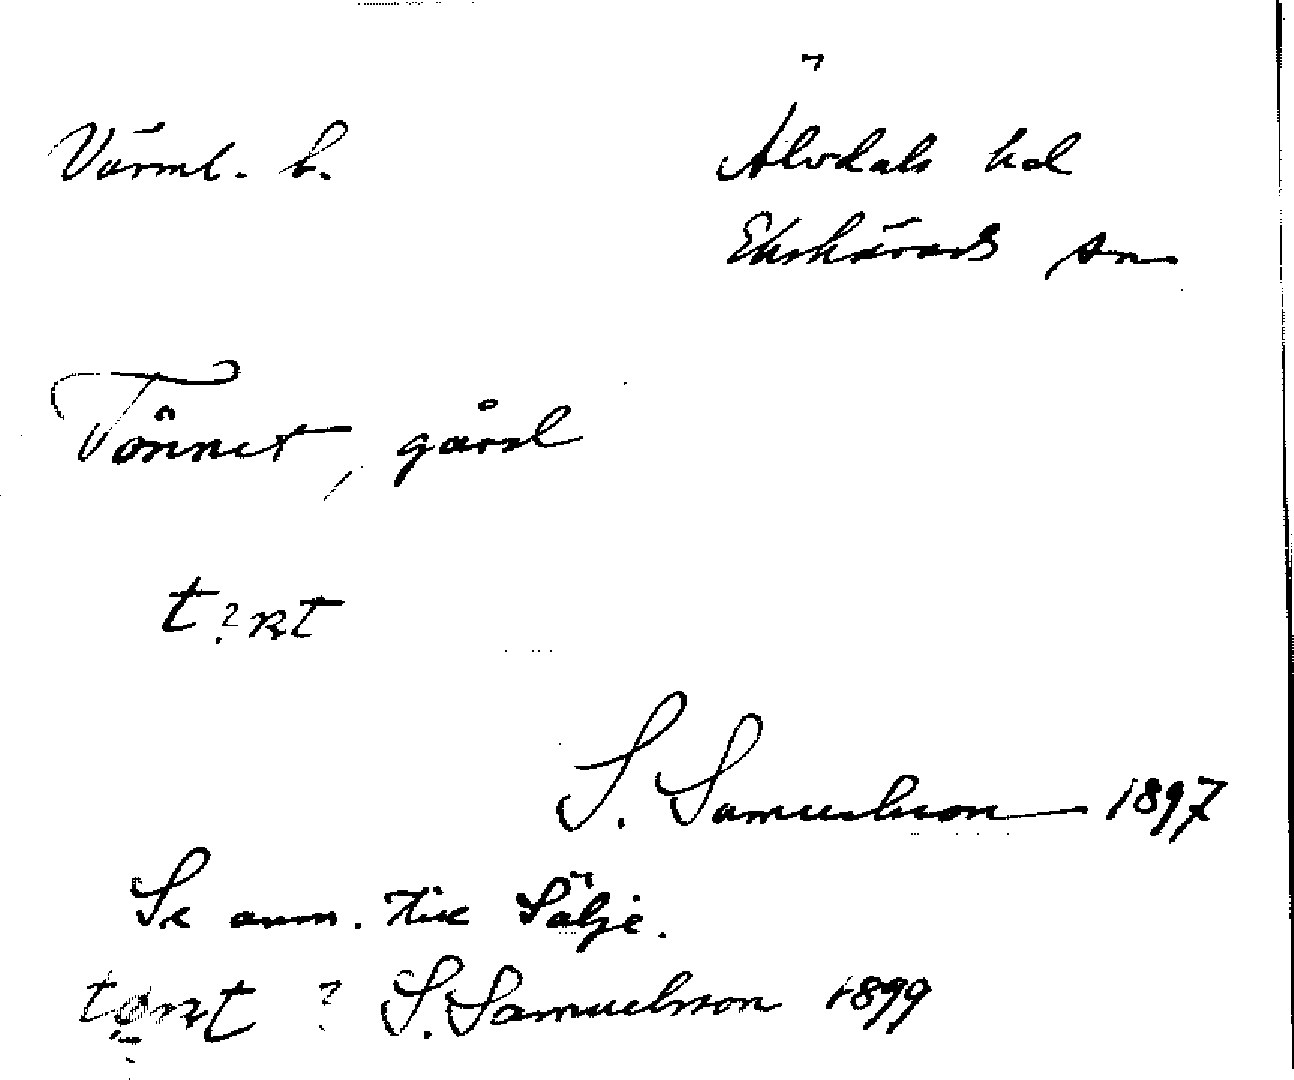 Värml. l. Älvdals hd
Ekshärads sn
Tönnet, gård
t?nt
S. Samuelsson 1897
Se anm. till Sälje.
? S. Samuelsson 1899